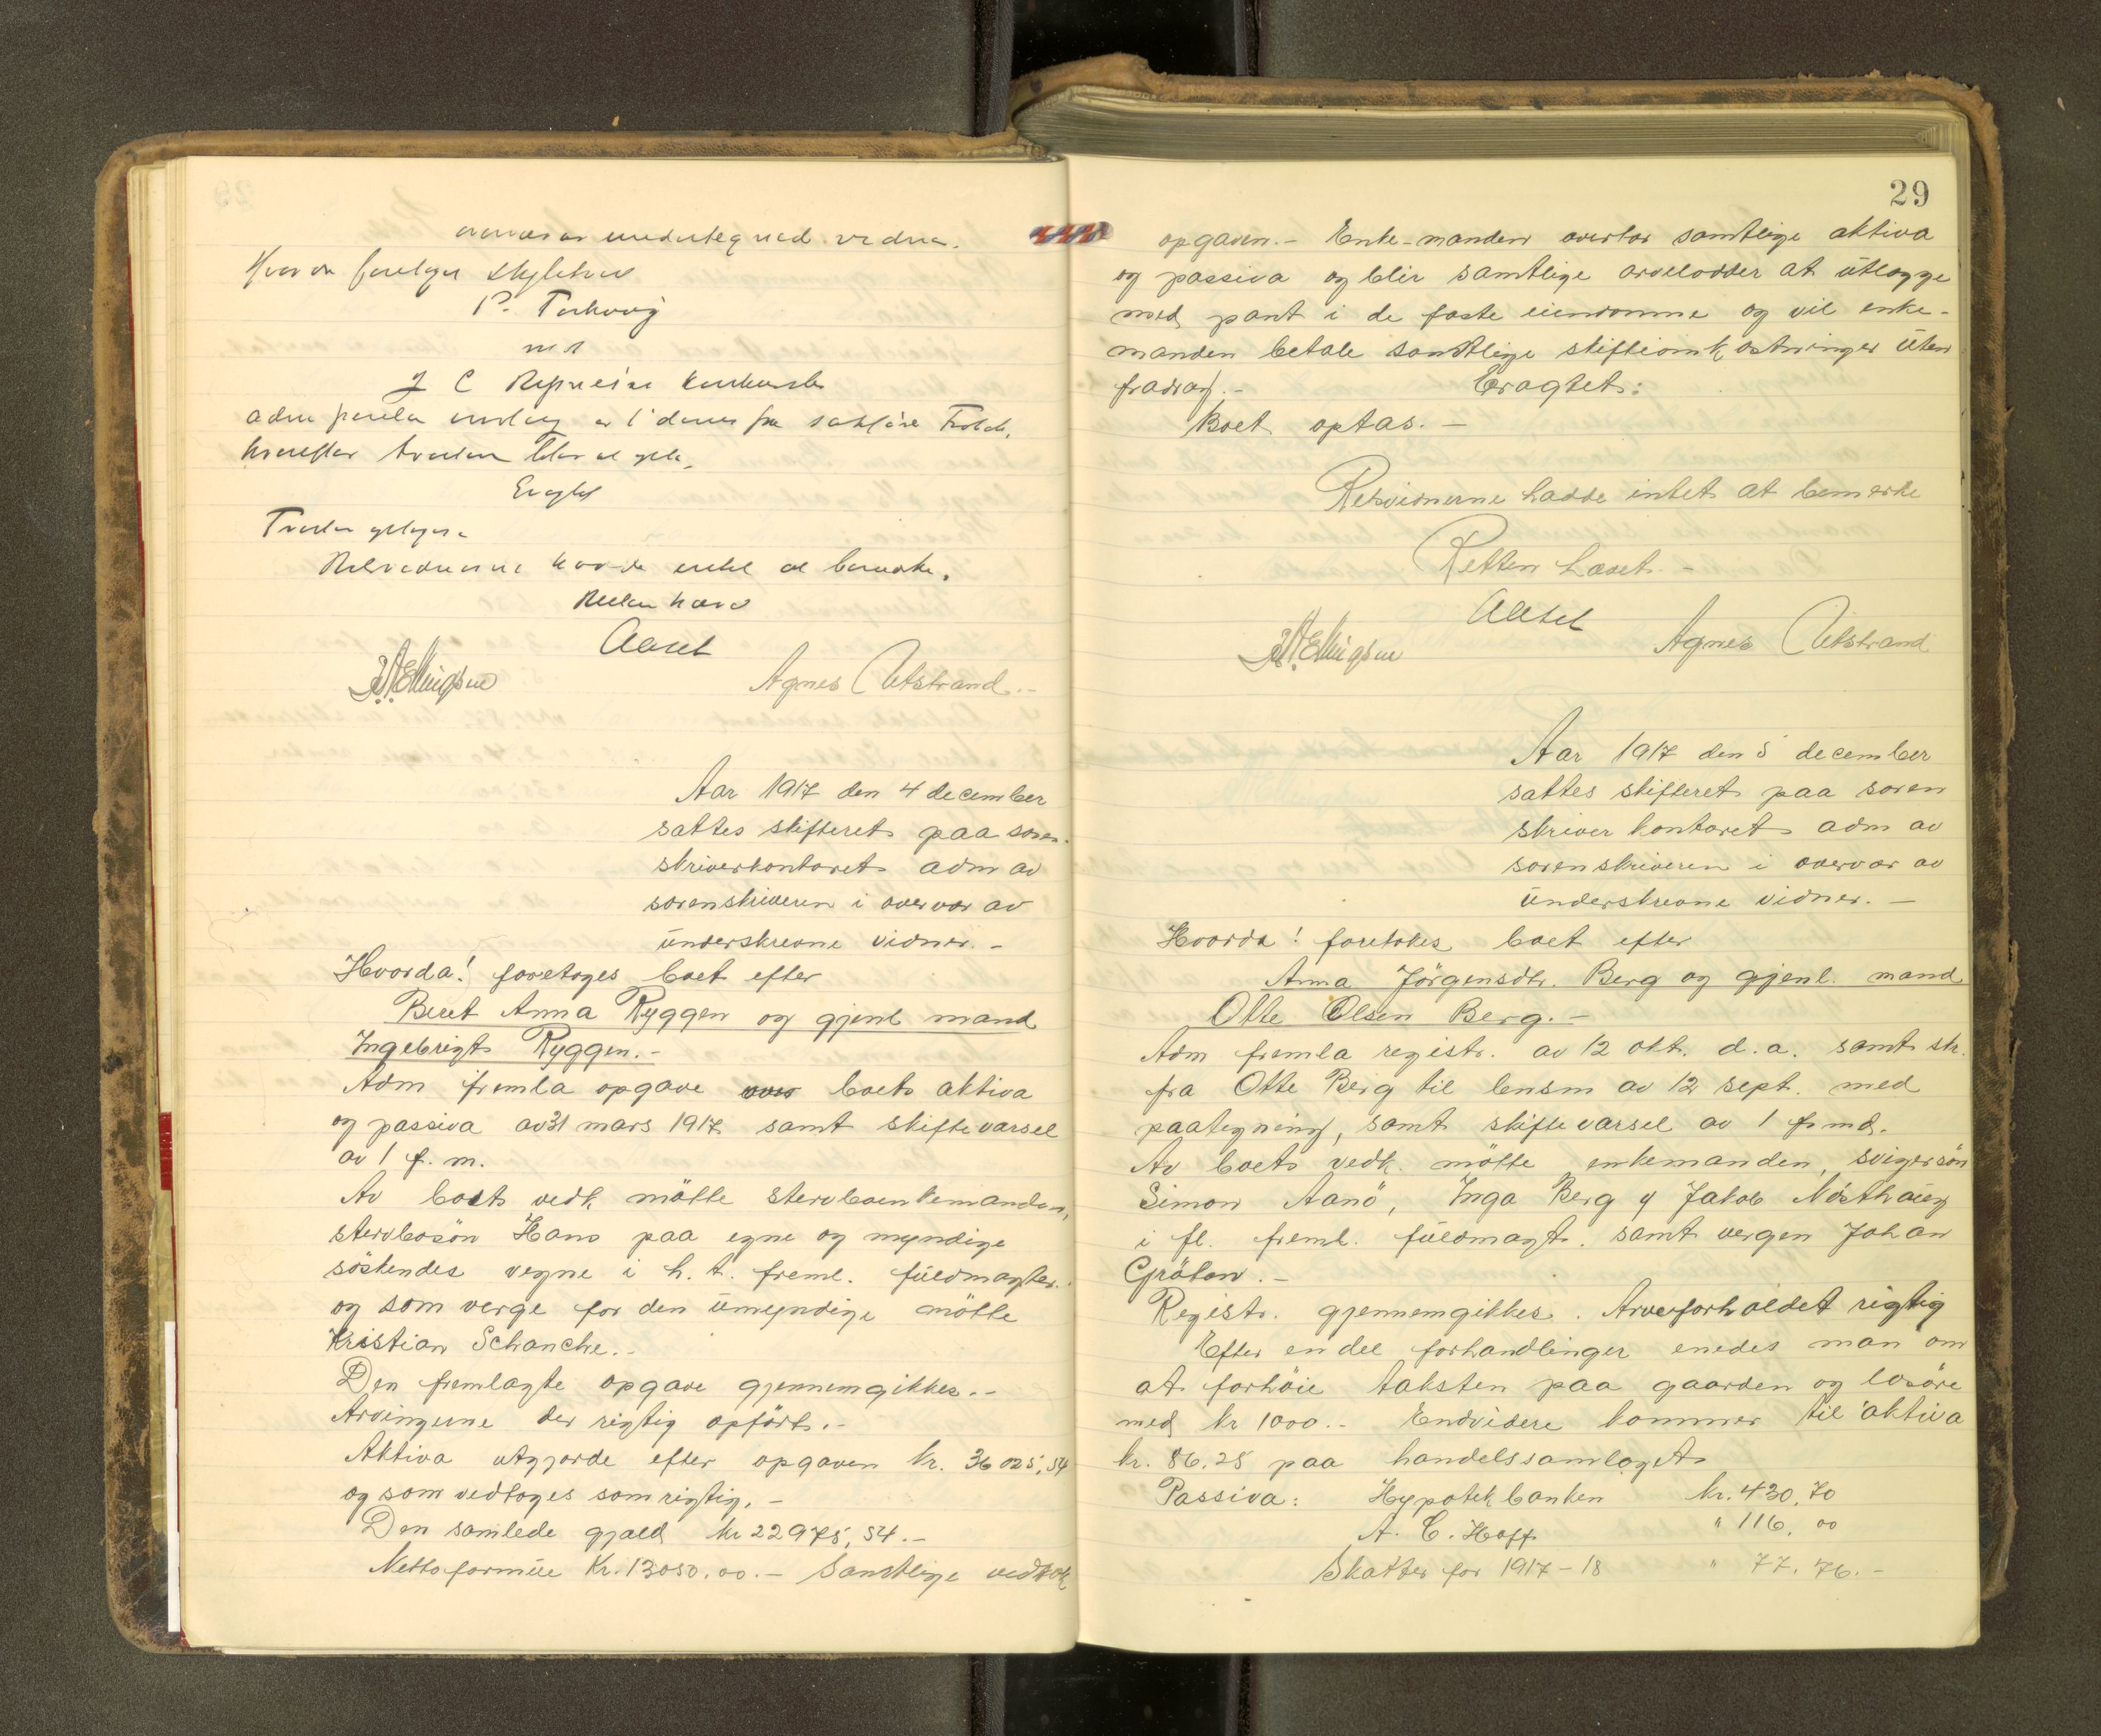 undertegnede vidner.
Hvorda foretoges
P.
mot
J C
Eragtet
Retsvidnerne havde intet at bemerke.
Retten hævet
Aaset
Ellingsen
Agnes Utstrand.-
Aar 1917 den 4 december
sattes skifteret paa soren-
skriverkontoret adm av
sorenskriveren i overvær av
underskrevne vidner.-
Hvorda! foretoges boet efter
Beret Anna Ryggen og gjenl mand
Ingebrigt Ryggen.-
Adm fremla opgave over boets aktiva
og passiva av 31 mars 1917 samt skiftevarsel
av 1 f. m.
Av boets vedk. mötte stervboenkemanden,
stervbosön Hans paa egne og myndige
söskendes vegne i h. t. freml. fuldmagter.
og som verge for den umyndige mötte
Kristian Schanche.-
Den fremlagte opgave gjennemgikkes.-
Arvingerne der rigtig opfört.-
Aktiva utgjorde efter opgaven kr. 36025,54
og som vedtoges som rigtig.-
Den samlede gjæld kr 22975,54.-
Nettoformue Kr. 13050.00.- Samtlige vedtok
29
opgaven.- Enke-manden overtar samtlige aktiva
og passiva og blir samtlige arvelodder at utlægge
med pant i de faste eiendomme og vil enke-
manden betale samtlige skifteomkostninger uten
fradrag.- Eragtet:
Boet optas.-
Retsvidnerne hadde intet at bemerke
Retten hævet.-
Aaset
Ellingsen
Agnes Utstrand
Aar 1917 den 5 december
sattes skifteret paa soren
skriver kontoret adm av
sorenskriveren i overvær av
underskrevne vidner.-
Hvorda! foretokes boet efter
Anna Jörgensdtr. Berg og gjenl. mand
Otte Olsen Berg.-
Adm fremla registr. av 12 okt. d.a. samt skr.
fra Otte Berg til lensm av 12 sept. med
paategning, samt skiftevarsel av 1 f md.
Av boets vedk. mötte enkemanden, svigersön
Simon Aanö, Inga Berg v Jakob Nösthaug
i fl. freml. fuldmagt. samt vergen Johan
Gröton.-
Registr. gjennemgikkes. Arveforholdet rigtig
Efter en del forhandlinger enedes man om
at forhöie taksten paa gaarden og lösöre
med kr 1000.- Endvidere kommer til aktiva
kr. 86.25 paa handelssamlaget
Passiva: Hypotekbanken kr. 430,70
A. C. Hoff " 116,00
Skatter for 1917-18 " 77,76.-